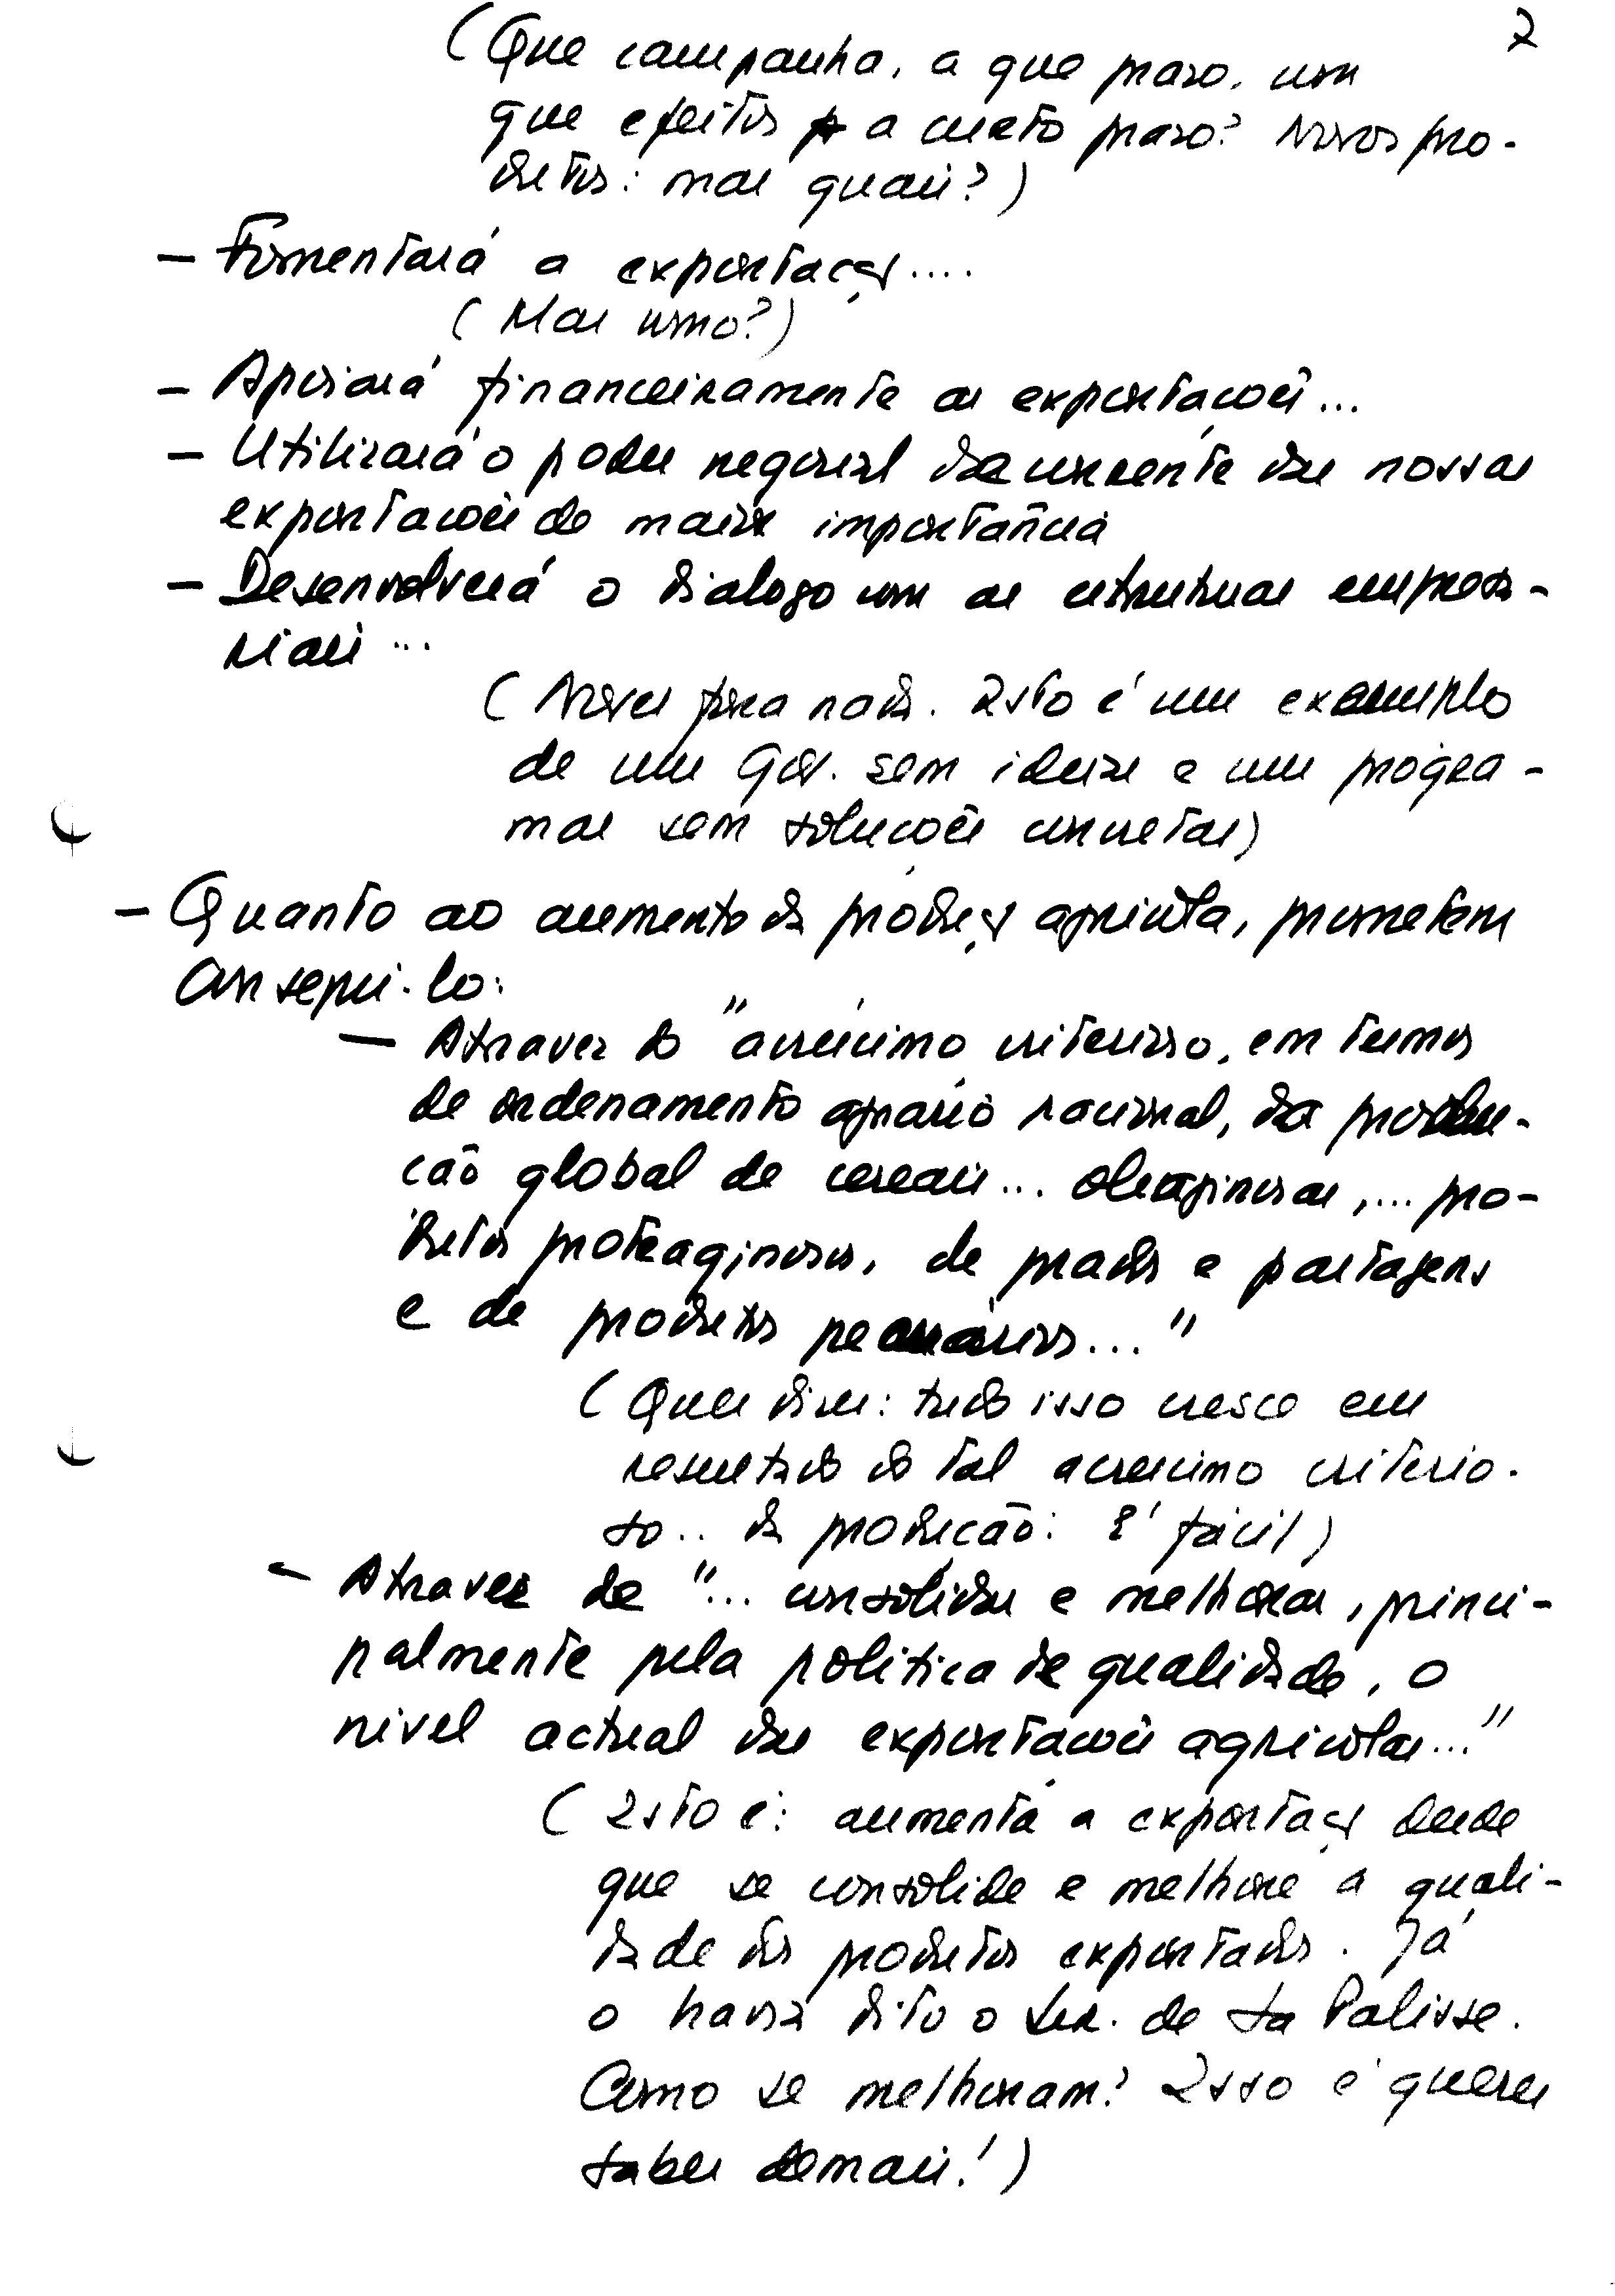 7
(Que campanha, a que prazo, com
que efeitos a curto prazo? Novos pro-
dutos: mas quais?)
- Fomentará a exportação....
(Mas como?)
- Apoiará financeiramente as exportações...
- Utilizará o poder negocial decorrente das nossas
exportações de maior importância
- Desenvolverá o dialogo com as estruturas empresa-
riais ...
(Novos para nada. Isto é um exemplo
de um Gov. sem ideias e um progra-
mas sem soluções concretas)
- Quanto ao aumento da produção agricola, prometem
conseguí-lo:
- Atravez do "acréscimo criterioso, em termos
de ordenamento agrário racional, da produ-
ção global de cereais... oleaginosas,... pro-
dutos proteaginosos, de prados e pastagens
e de produtos pecuários..."
(Quer dizer: tudo isso cresce em
resultado do tal acrescimo criterio-
so.. da produção: É fácil)
- Atravez de "... consolidar e melhorar, princi-
palmente pela politica de qualidade, o
nivel actual das exportações agricolas..."
(Isto é: aumenta a exportação desde
que se consolide e melhore a quali-
dade dos produtos exportados. Já
o havia dito o Ser. de La Palisse.
Como se melhoram? Isso é querer
saber demais!)